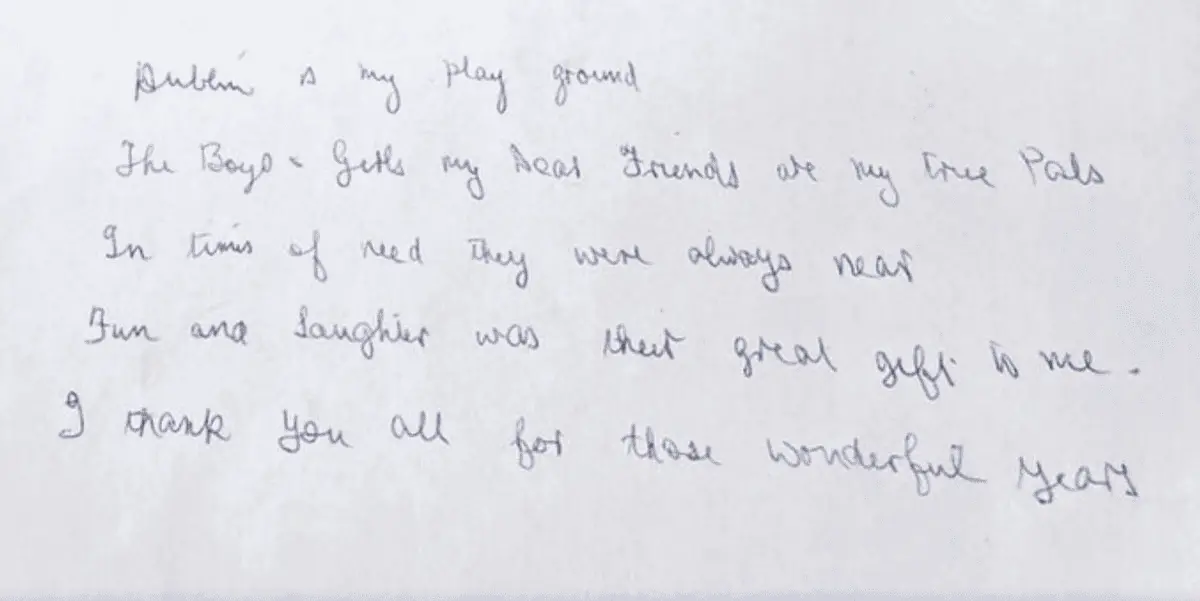 Dublin is my play ground
The Boys & Girls my Dear Friends are my true Pals
In times of need they were always near
Fun and Laughter was their great gift to me.
I thank you all for those wonderful years